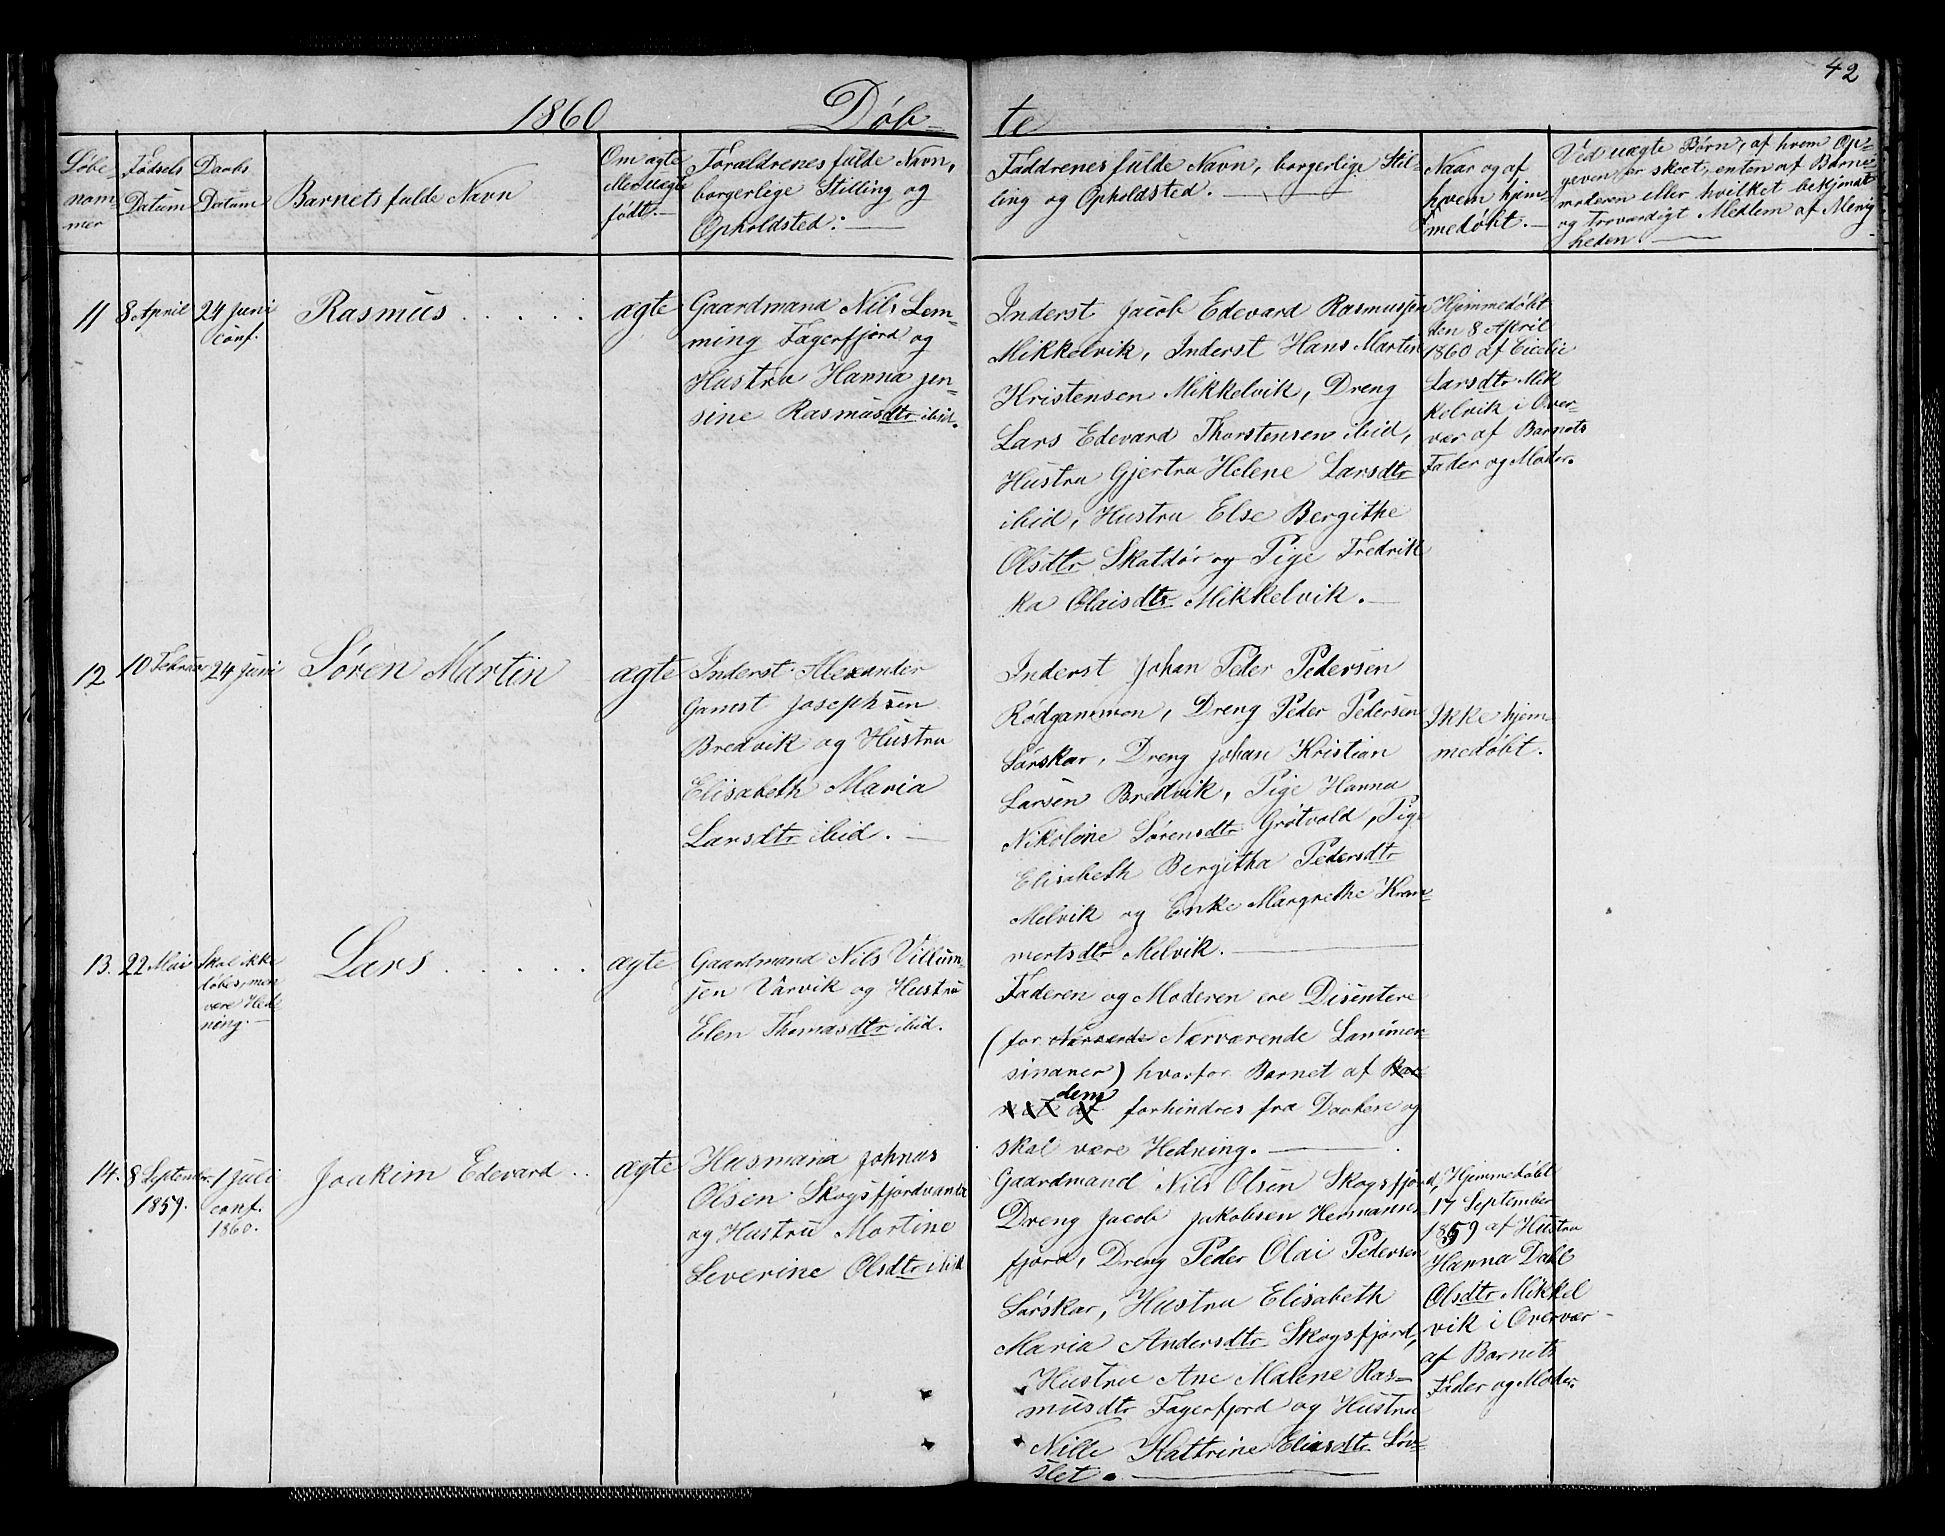 42
1860 Döb-
te
Löbe
nom-
mer
Fødsels
Datum
Daabs
Datum
Barnets fulde Navn
Om ægte
eller uægte
født.
Forældrenes fulde Navn,
borgerlege Stilling og
Opholdsted:
Faddrenes fulde Navn, borgerlige Stil-
ling og Opholdsted.
Naar og af
hvem hjem-
medøbt.
Ved uægte Børn, af hvem Op-
given er skeet, enten af Barne
moderen eller hvilket bekjendt
og troværdigt Medlem af Menig
heden
11
8 April
24 Juni
conf.
Rasmus
ægte
Gaardmand Nils Lem-
ming Fagerfjord og
Hustru Hanna Jen-
sine Rasmusdtr ibid.
Inderst Jacob Edevard Rasmussen
Mikkelvik, Inderst Hans Martin
Kristensen Mikkelvik, Dreng
Lars Edevard Thorstensen ibid,
Hustru Gjertru Helene Larsdtr
ibid, Hustru Else Bergithe
Olsdtr Skatdør og Pige Fredrik
ka Olaisdtr Mikkelvik.
Hjemmedøbt
den 8 April
1860 af Cicelie
Larsdtr Mik
kelvik i Over-
vær af Barnets
Fader og Moder.
12
10 Februar
24 Juni
Søren Martin
ægte
Inderst Alexander
Josephsen
Bredvik og Hustru
Elisabeth Maria
Larsdtr ibid.
Inderst Johan Peder Pedersen
Rødgammen, Dreng Peder Pedersen
Sørskar, Dreng Johan Kristian
Larsen Bredvik, Pige Hanna
Nikoline Sørensdtr Grøtvold, Pige
Elisabeth Bergitha Pedersdtr
Melvik og Enke Margrethe Kram-
mertsdtr Melvik.
Ikke hjem
medøbt.
13.
22 Mai
Skal ikke
døbes, men
være Hed-
ning.
Lars
ægte
Gaardmand Nils Villum-
sen Vårvik og Hustru
Elen Thomasdtr ibid.
Faderen og Moderen ere Disentere
(for Nærværende Lammer-
sinaner) hvorfor Barnet af
dem forhindres fra Daaben og
skal være Hedning.
14.
8 September
1859.
1 Juli
conf.
1860.
Joakim Edevard
ægte
Husmand Johnas
Olsen Skogsfjordvand
og Hustru Martine
Severine Olsdtr ibid
Gaardmand Nils Olsen Skogsfjord,
Dreng Jacob Jakobsen Hermans
fjord, Dreng Peder Olai Pedersen
Sørskar, Hustru Elisabeth
Maria Andersdtr Skogsfjord,
Hustru Ane Malene Ras-
musdtr Fagerfjord og Hustru
Nille Kattrine Eliasdtr Løv-
slet.
Hjemmedøbt
17 September
1859 af Hustru
Hanna Dahl
Olsdtr Mikkel
vik i Overvær
af Barnets
Fader og Moder.